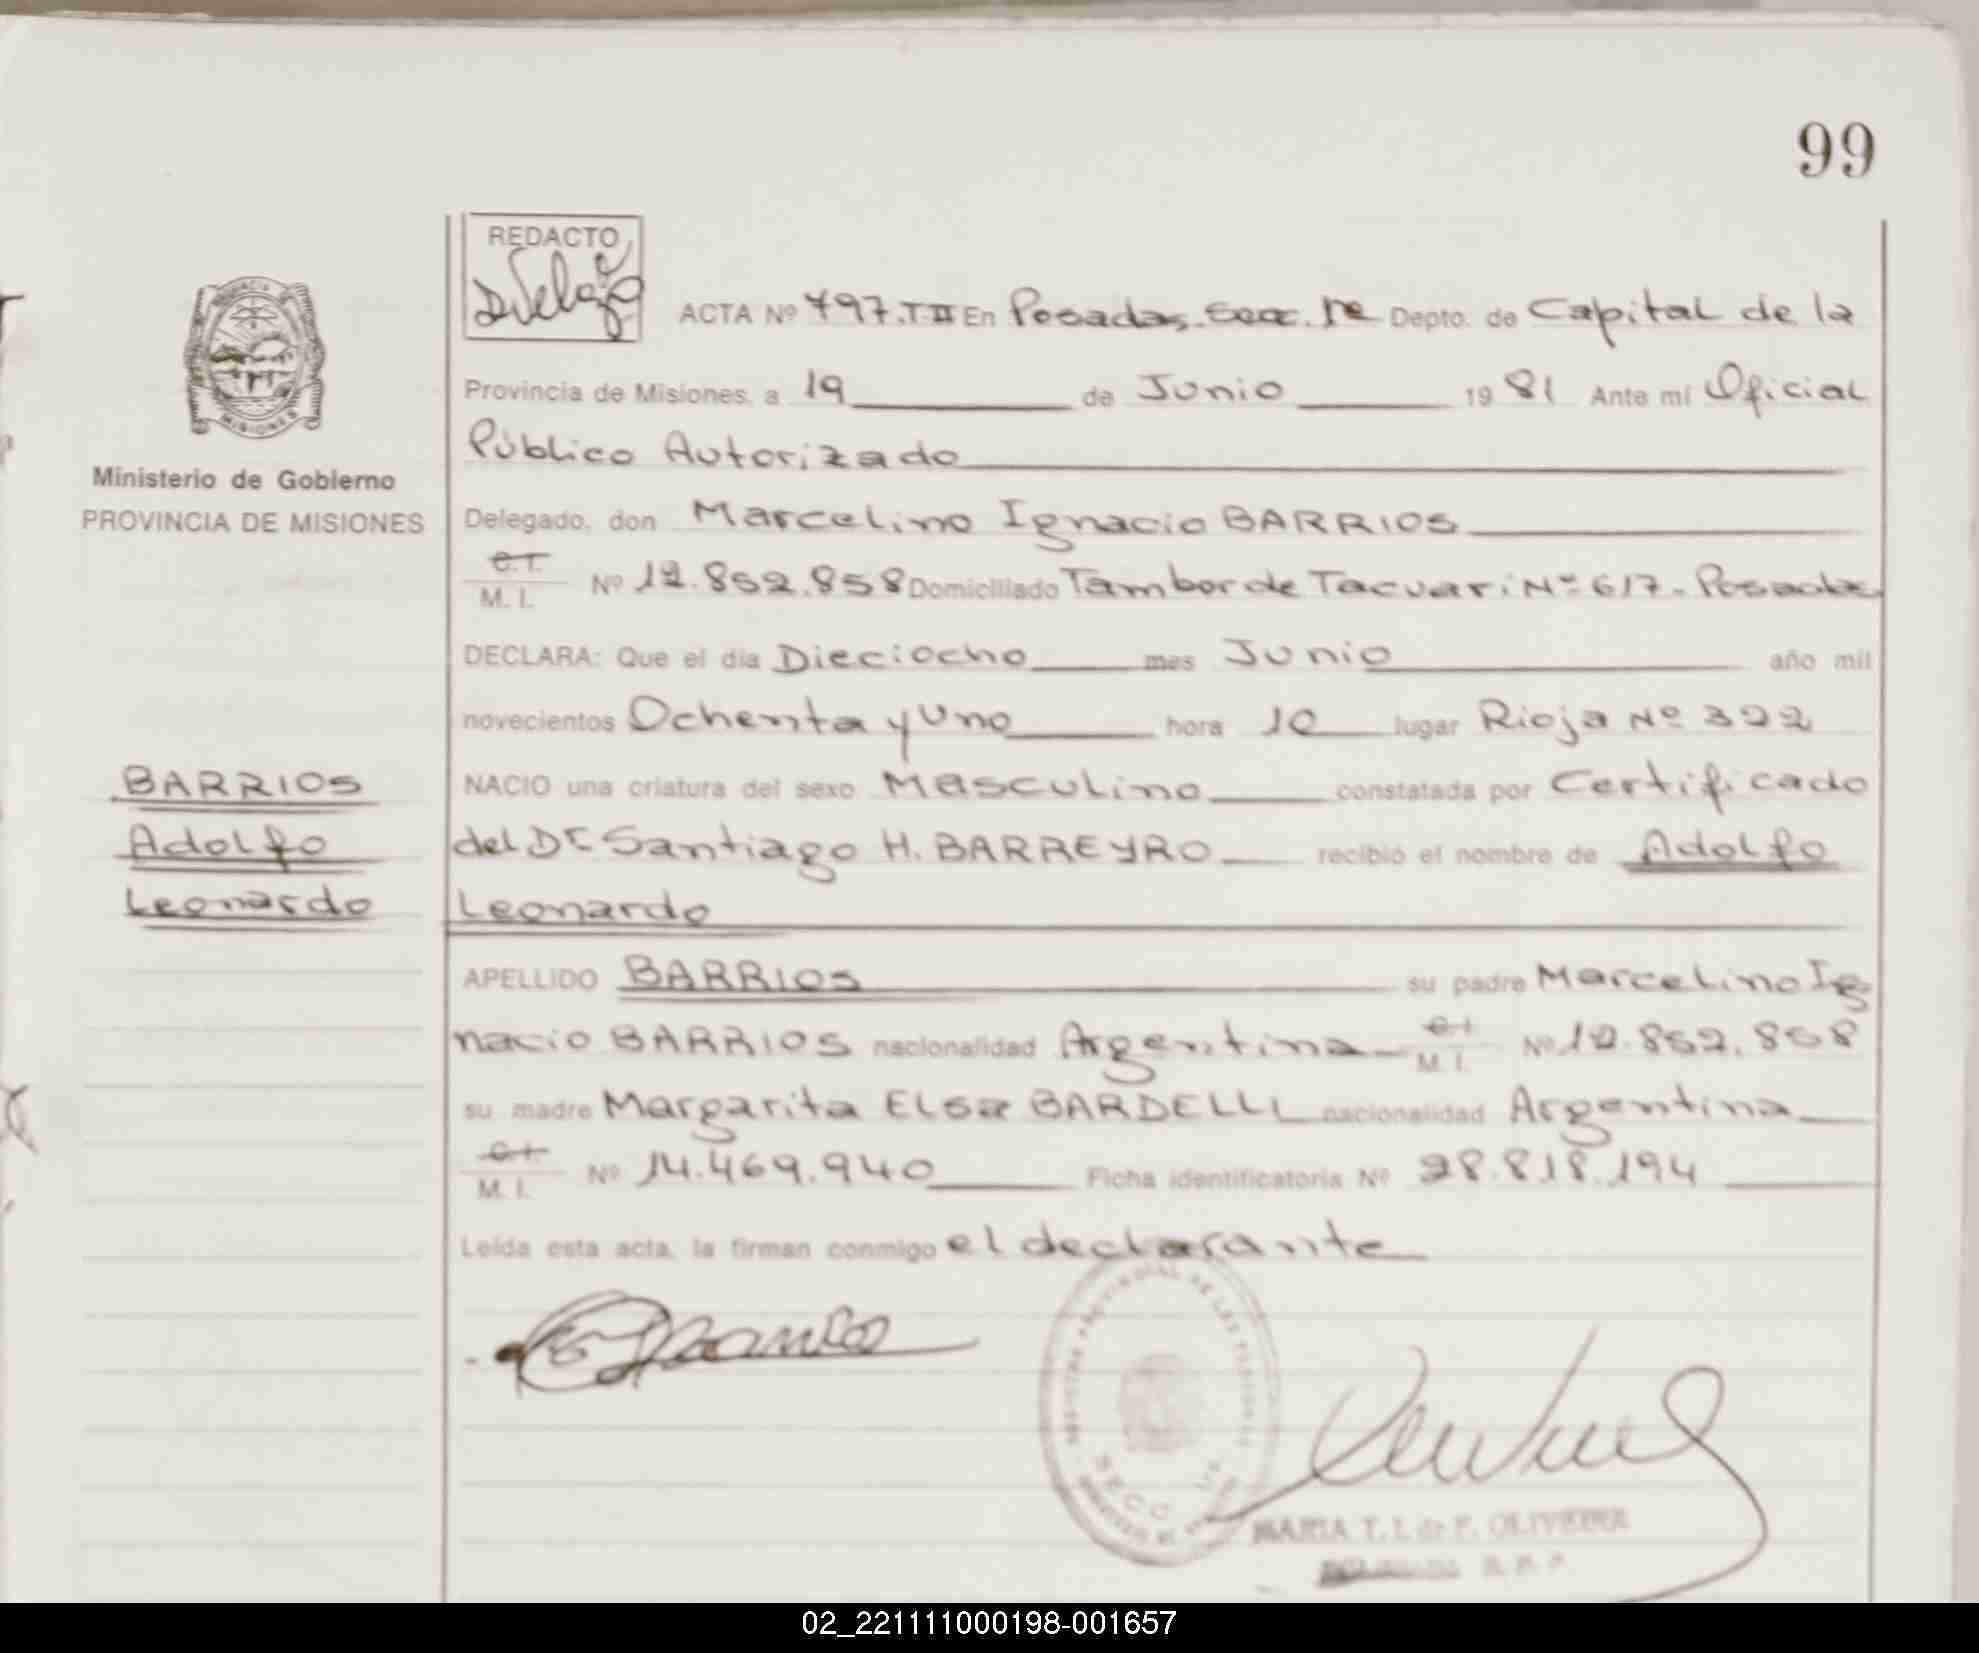 99
REDACTO
ACTA Nº 797.T II En Posadas. Secc. 1ª Depto. de Capital de la
Provincia de Misiones, a 19 de Junio 1981 Ante mí Oficial
Público Autorizado
Ministerio de Gobierno
PROVINCIA DE MISIONES
Delegado, don Marcelino Ignacio BARRIOS
C.I.
M. I. Nº 12.852.858 Domiciliado Tambor de Tacuari Nº 617. Posadas
DECLARA: Que el día Dieciocho mes Junio año mil
novecientos Ochenta y Uno hora 10 lugar Rioja Nº 322
BARRIOS
Adolfo
Leonardo
NACIO una criatura del sexo Masculino constatada por Certificado
del Dr. Santiago H. BARREYRO recibió el nombre de Adolfo
Leonardo
APELLIDO BARRIOS su padre Marcelino Ig
nacio BARRIOS nacionalidad Argentina C.I.
M. I. Nº 12.852.858
su madre Margarita Elsa BARDELLI nacionalidad Argentina
C.I.
M. I. Nº 14.469.940 Ficha identificatoria Nº 28.818.194
Leída esta acta, la firman conmigo el declarante
MARIA T. I. de F. OLIVEIRA
R. P. P
02_221111000198-001657